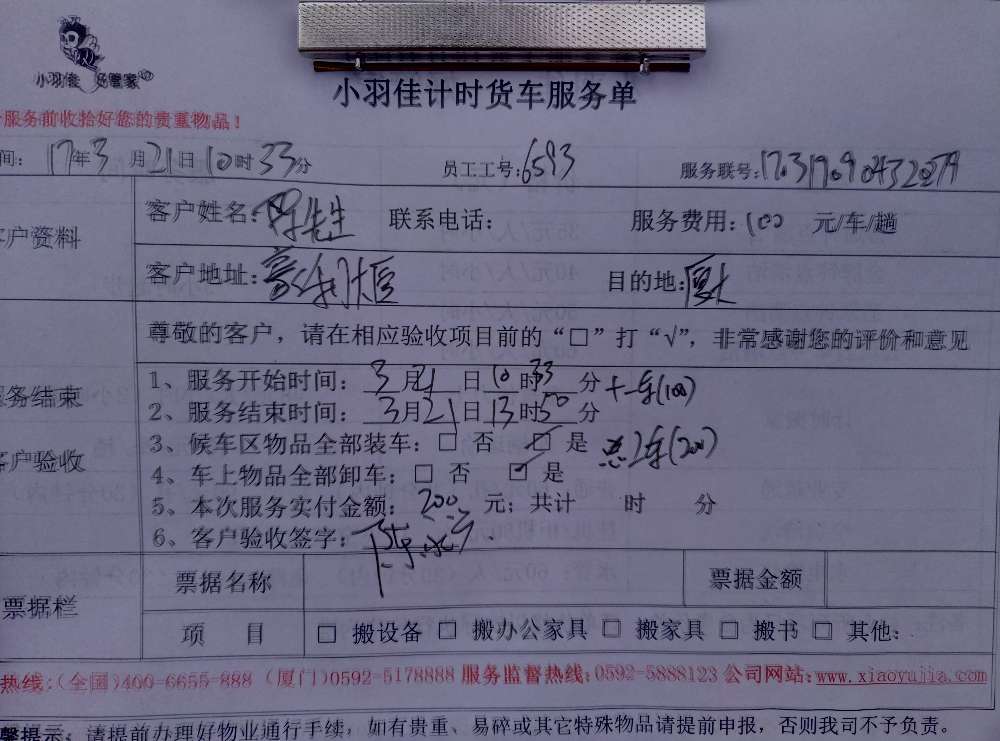 小羽佳 好管家
小羽佳计时货车服务单
服务前收拾好您的贵重物品！
间: 17年3月21日10时33分 员工工号:6593 服务联号:
客户资料
客户姓名:陈先生 联系电话: 服务费用:100 元/车/趟
客户地址: 目的地:厦大
尊敬的客户，请在相应验收项目前的“□”打“√”，非常感谢您的评价和意见
服务结束
客户验收
1、服务开始时间: 3月21日10时33分 +一车(100)
2、服务结束时间: 3月21日13时50分
3、候车区物品全部装车:□ 否 ☑ 是 总2车(200)
4、车上物品全部卸车:□ 否 ☑ 是
5、本次服务实付金额: 200 元; 共计 时 分
6、客户验收签字:
票据栏
票据名称 票据金额
项 目 □ 搬设备 □ 搬办公家具 □ 搬家具 □ 搬书 □ 其他:
热线:(全国)400-6655-888 (厦门)0592-5178888 服务监督热线:0592-5888123 公司网站:www.xiaoyujia.com
馨提示: 请提前办理好物业通行手续，如有贵重、易碎或其它特殊物品请提前申报，否则我司不予负责。